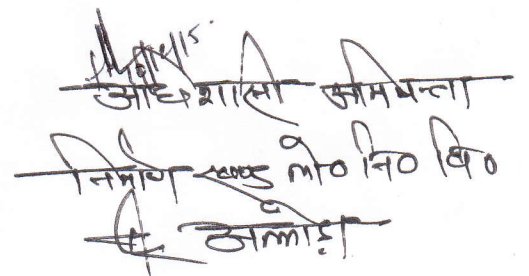 अधिशासी अभियन्ता
निर्माण खण्ड लो० नि० वि०
अल्मोड़ा